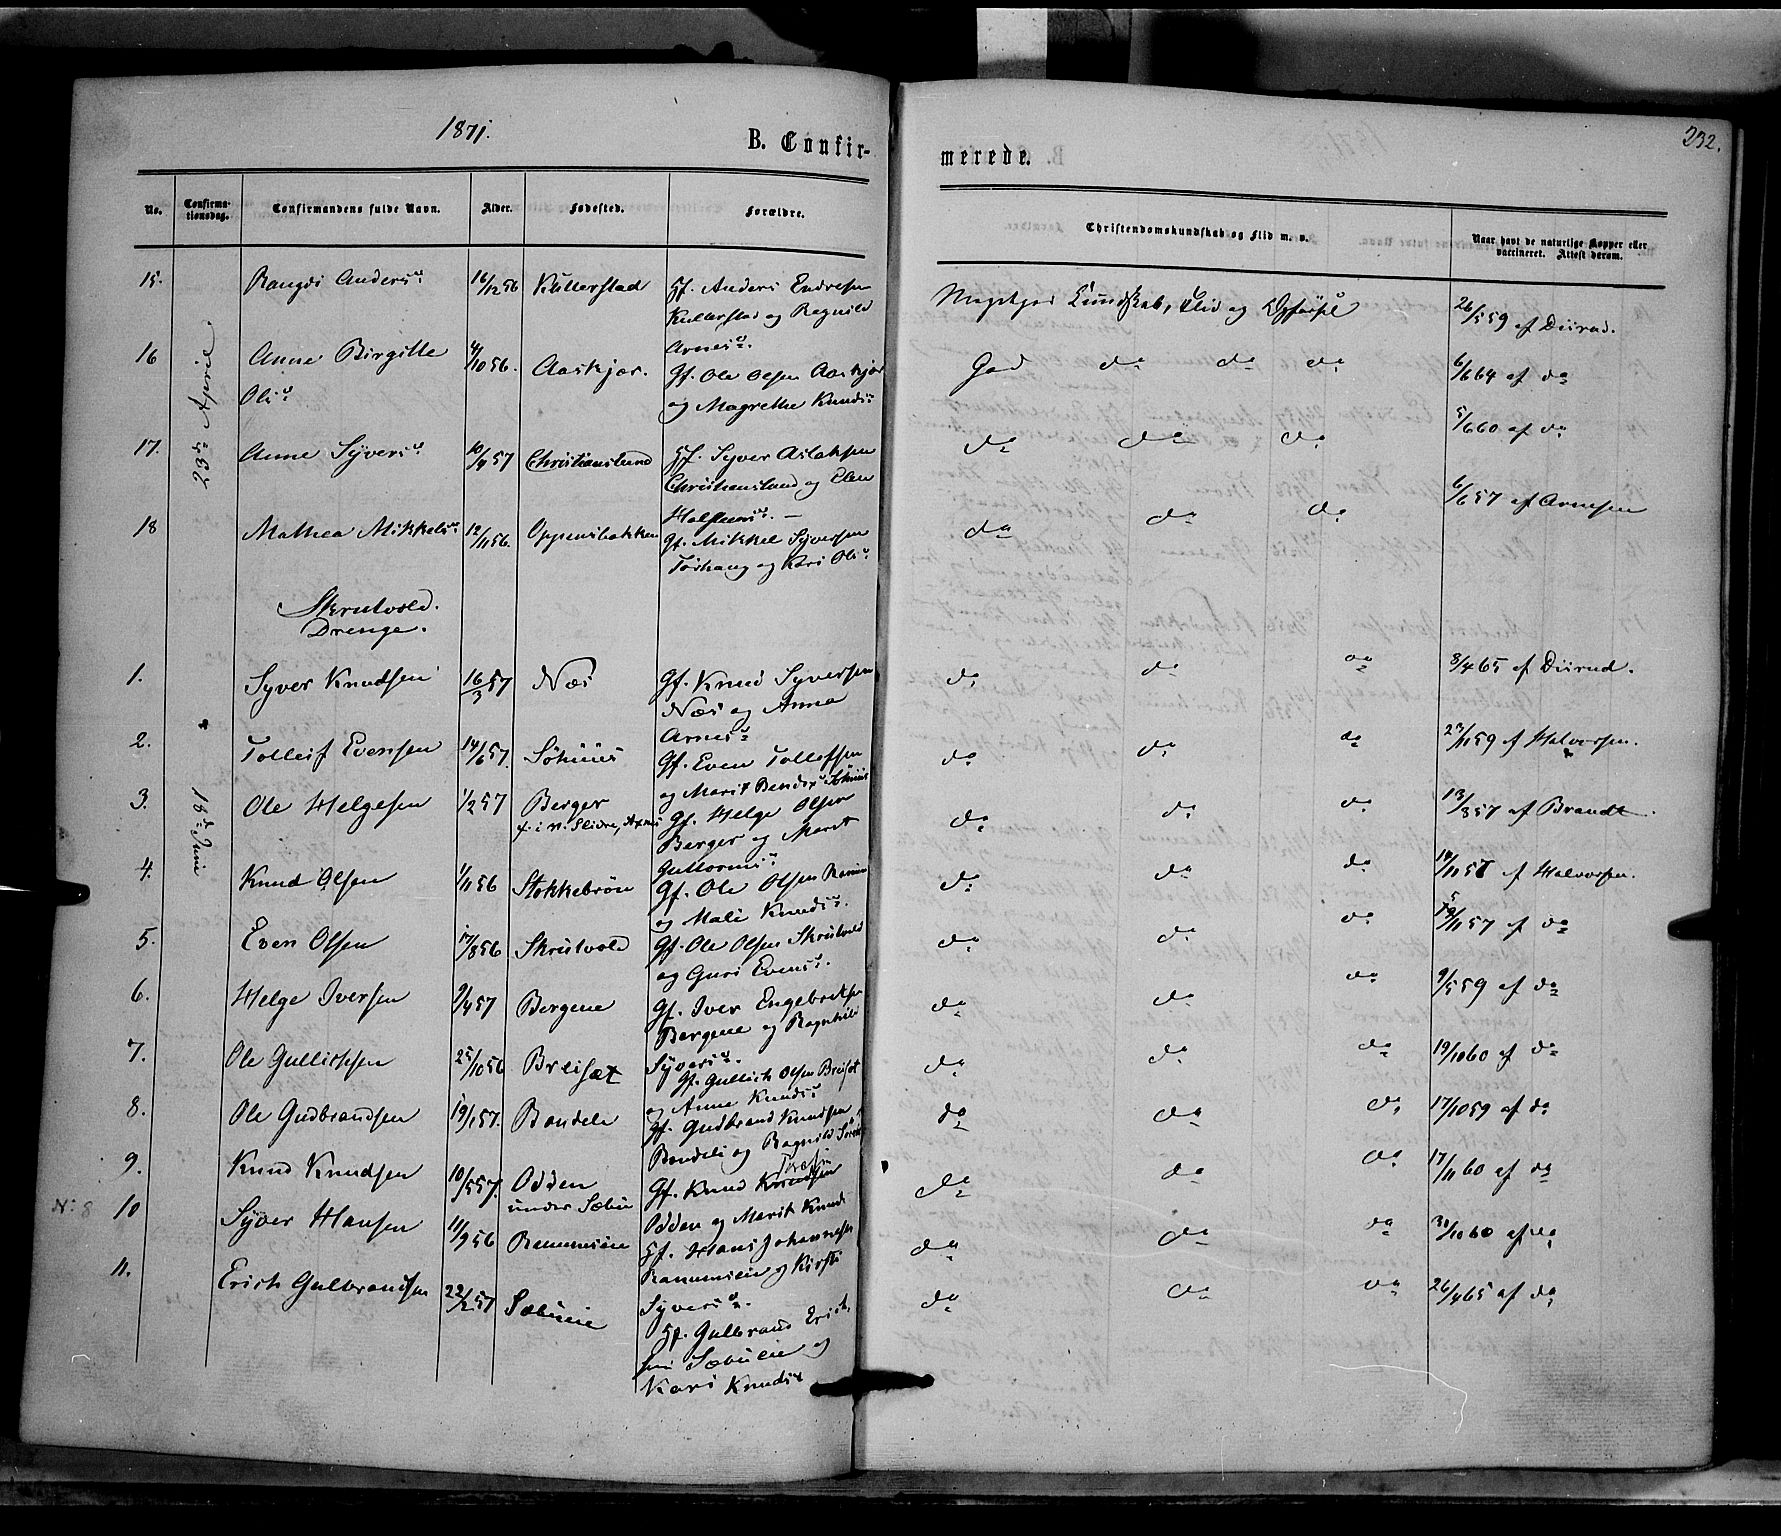 1871.
B. Confir-
merede.
232.
No.
Confirma-
tionsdag.
Confirmandens fulde Navn.
Alder.
Fødested.
Forældre.
Christendomskundskab og Flid m. v.
Naar havt de naturlige Kopper eller
vaccineret. Attest derom.
15. Rangdi Andersd 16/12 56 Kullerstad Gf. Anders Endresen
Kullerstad og Ragnild
Arnesd.
Meget god Kundskab, Flid og Opførsel 26/5 59 af Diirud.
16 Anne Birgitte 4/10 56. Aaskjær. Gf. Ole Olsen Aaskjær
Olsd og Magrethe Knudsd
God do do do 6/6 64 af do
17. Anne Syversd 10/4 57 Christianslund Gf. Syver Aslaksen
Christianslund og Elen
do do do 5/6 60 af do
18 Mathea Mikkelsd 12/11 56. Oppensbakken Gf. Mikkel Syversen
og Kari Olsd
do do do 6/6 57 af Arnesen
Skrutvold.
Drenge.
18d Juni
1. Syver Knudsen 16/3 57 Næs Gf. Knud Syversen
Næs og Anna
Arnesd
do do do 8/4 65 af Diirud.
2. Tolleif Evensen 14/6 57. Gf. Even Tollefsen
og Marit Bendixd
do do do 23/11 59 af Halvorsen.
3. Ole Helgesen 1/2 57 Berger Gf. Helge Olsen
f. i N. Slidre, Berger og Marit
Guttormsd
do do do 13/8 57 af Brandt.
4. Knud Olsen 1/11 56 Stokkebrøn Gf. Ole Olsen
og Mali Knudsd.
do do do 14/11 57 af Halvorsen.
5. Even Olsen 17/8 56 Skrutvold Gf. Ole Olsen Skrutvold
og Guri Evensd.
do do do 11 57 af do
6. Helge Iversen 9/4 57 Bergene Gf. Iver Engebretsen
Bergene og Ragnhild
Syversd.
do do do 9/5 59 af do
7. Ole Gulliksen 25/10 56 Breiset Gf. Gullick Olsen Breiset
og Anne Knudsd
do do do 19/10 60 af do
8. Ole Gudbrandsen 19/1 57. Bandeli Gf. Gudbrand Knudsen
Bandeli og Ragnild
do do do 17/10 59 af do
9. Knud Knudsen 10/5 57. Odden Gf. Knud
under Sæbu Odden og Marit Knudsd
do do do 17/11 60 af do
N: 8
10 Syver Hansen 11/9 56 Gf. Hans Johannesen
og Kirsti
Syversd.
do do do 31/10 60 af do
11. Erich Gulbrandsen 22/2 57 Sæbueie Gf. Gulbrand Erich-
sen Sæbueie og
Kari Knudsd
do do do 26/4 65 af do